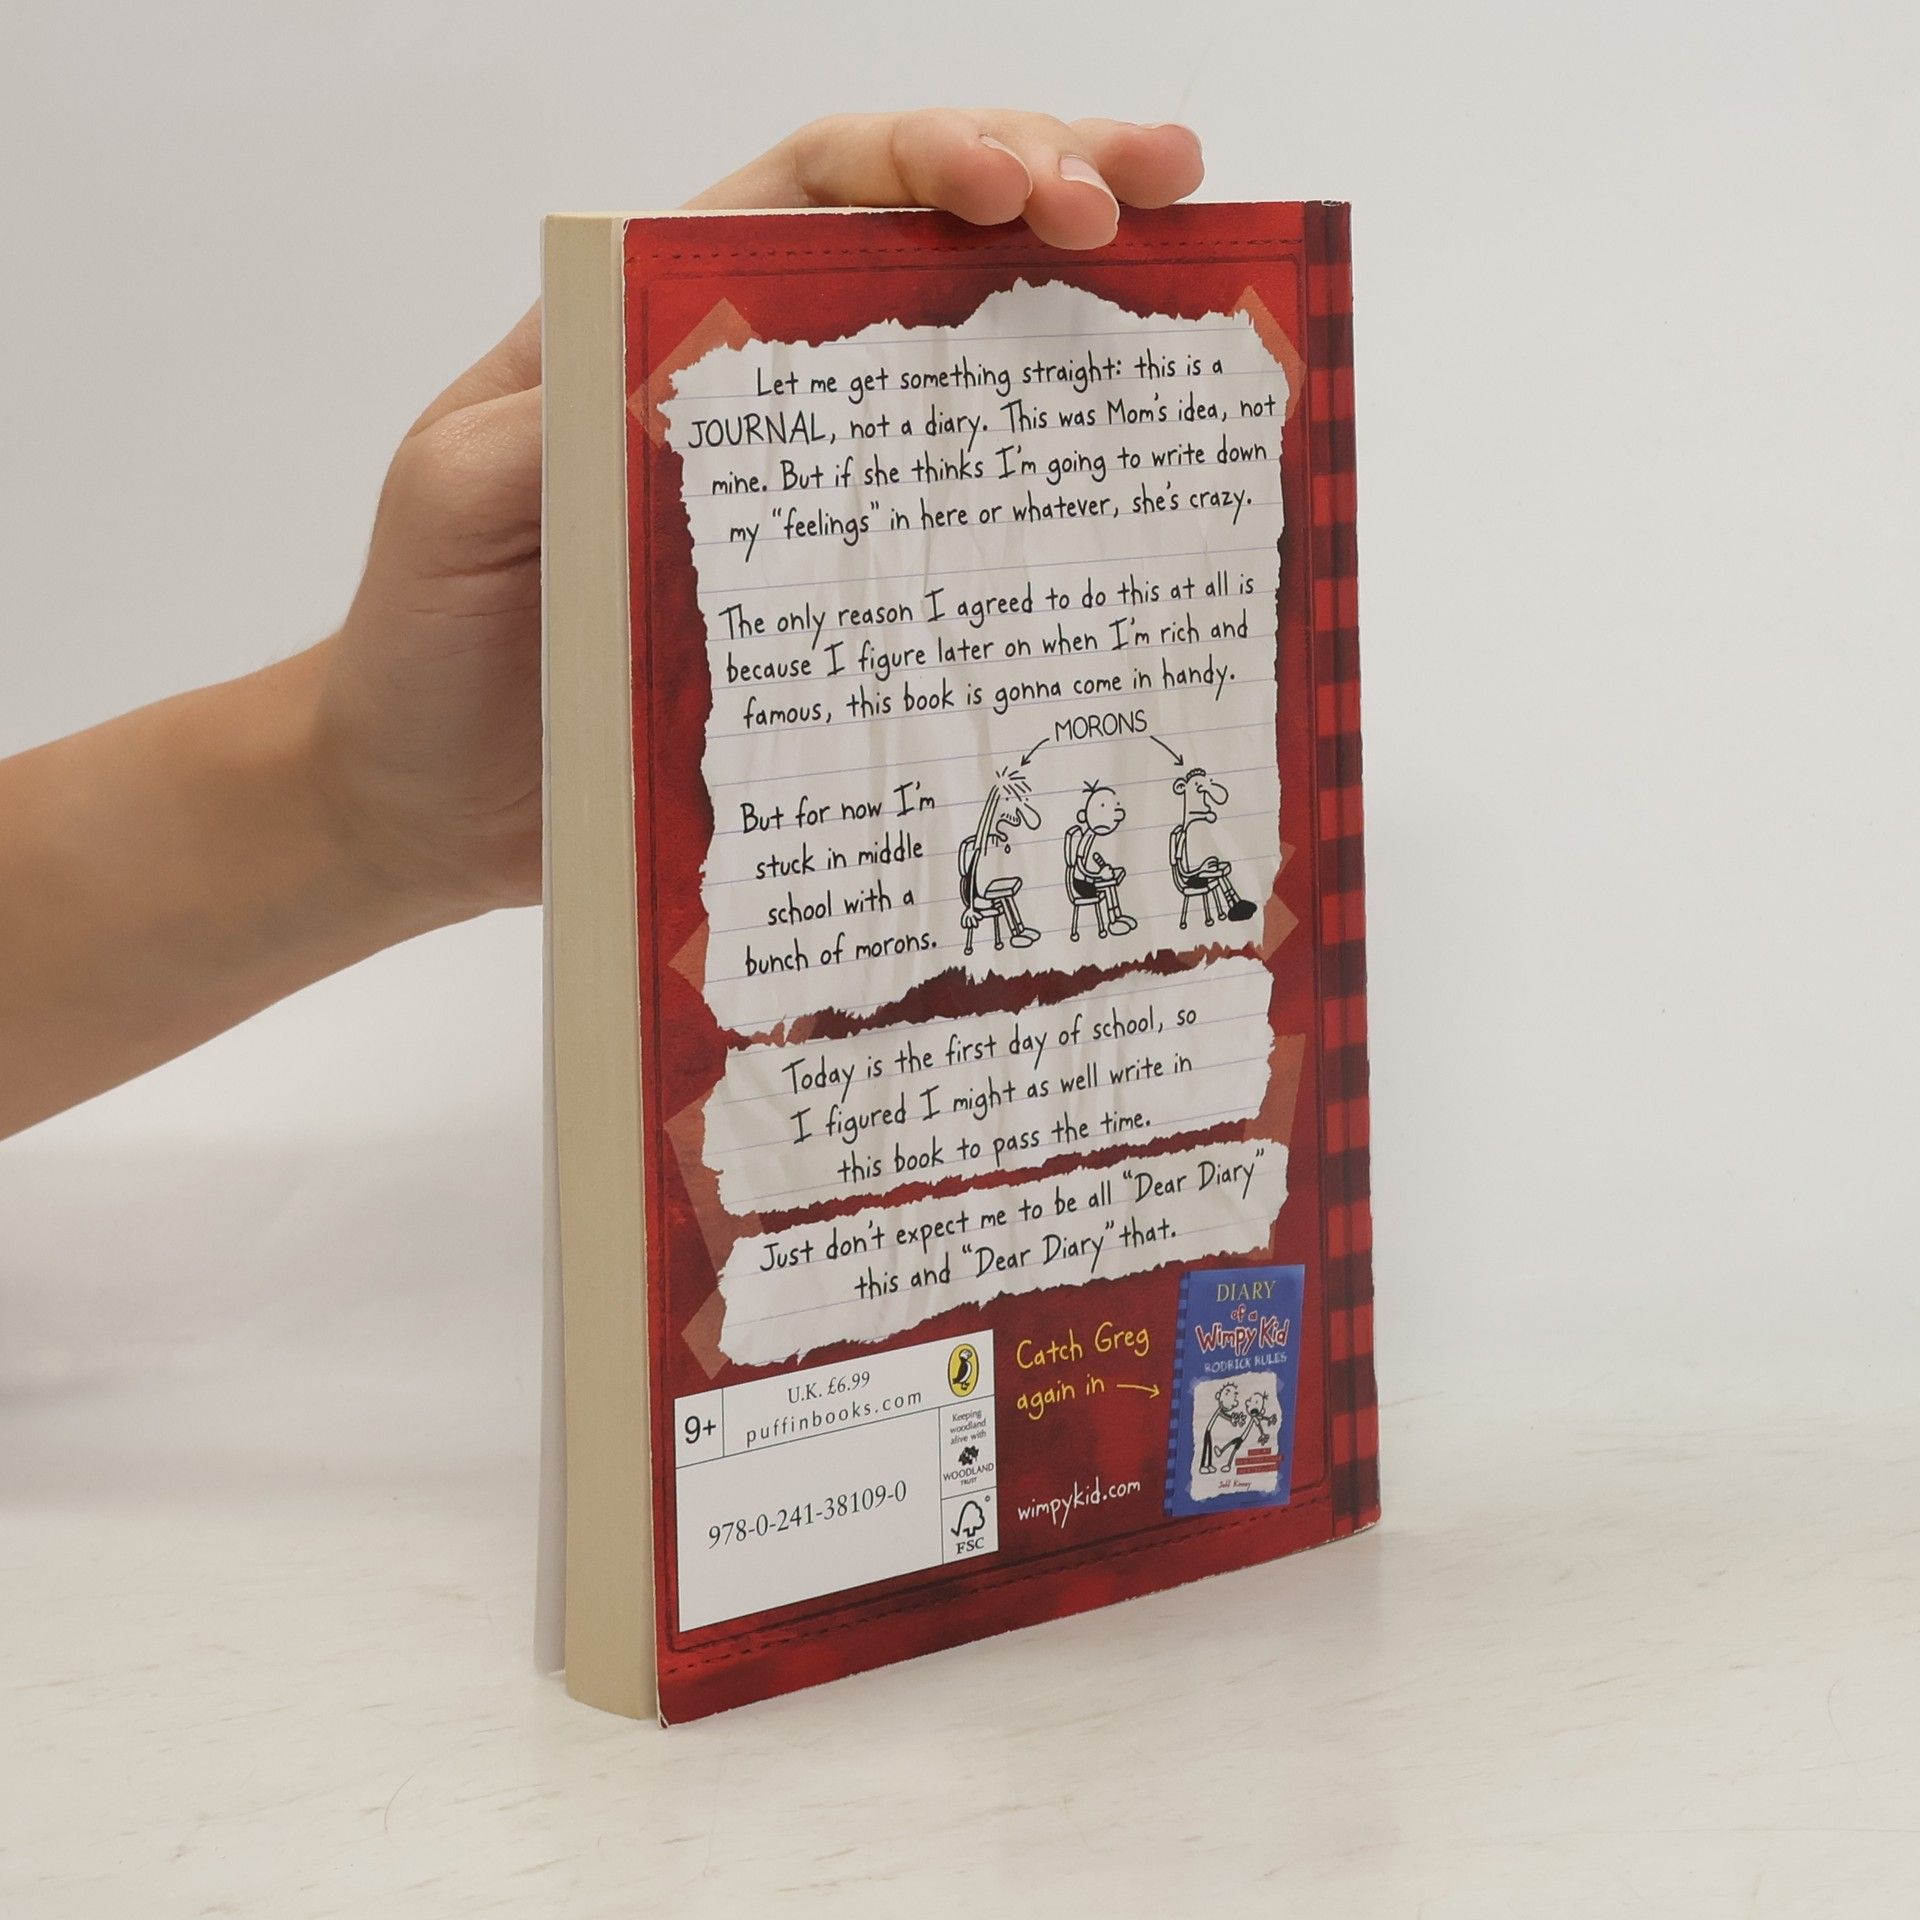 Let me get something straight: this is a
JOURNAL, not a diary. This was Mom's idea, not
mine. But if she thinks I'm going to write down
my "feelings" in here or whatever, she's crazy.
The only reason I agreed to do this at all is
because I figure later on when I'm rich and
famous, this book is gonna come in handy.
MORONS
But for now I'm
stuck in middle
school with a
bunch of morons.
Today is the first day of school, so
I figured I might as well write in
this book to pass the time.
Just don't expect me to be all "Dear Diary"
this and "Dear Diary" that.
9+
U.K. £6.99
puffinbooks.com
978-0-241-38109-0
Keeping
woodland
alive with
WOODLAND
TRUST
FSC
Catch Greg
again in
wimpykid.com
DIARY
of a
Wimpy Kid
RODRICK RULES
Jeff Kinney